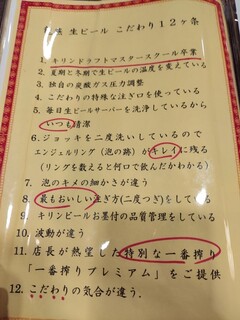 生ビール こだわり１２ヶ条
1. キリンドラフトマスタースクール卒業
2. 夏期と冬期で生ビールの温度を変えている
3. 独自の炭酸ガス圧力調整
4. こだわりの特殊な注ぎ口を使っている
5. 毎日生ビールサーバーを洗浄しているから
いつも清潔
6. ジョッキを二度洗いしているので
エンジェルリング（泡の跡）がキレイに残る
（リングを数えると何口で飲んだかわかる）
7. 泡のキメの細かさが違う
8. 最もおいしい注ぎ方(二度つぎ)をしている
9. キリンビールお墨付の品質管理をしている
10. 波動が違う
11. 店長が熱望した特別な一番搾り
「一番搾りプレミアム」をご提供
12. こだわりの気合が違う.